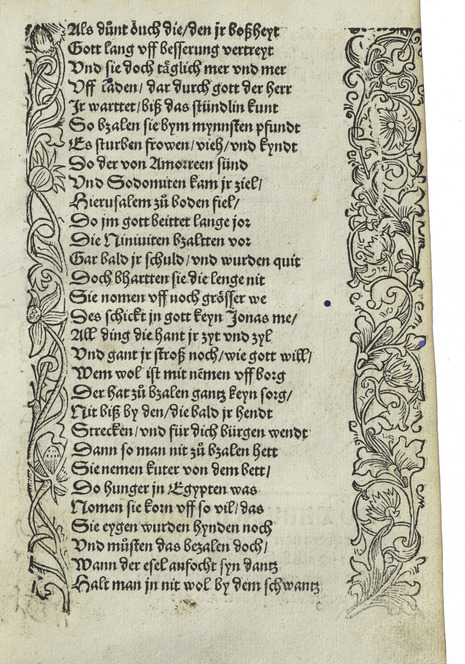 Als dünt ouch die/den jr boßheyt
Gott lang vff besserung vertreyt
Vnd sie doch täglich mer vnd mer
Vff laden/dar durch gott der herr
Jr warttet/biß das stündlin kunt
So bzalen sie bym mynnsten pfundt
Es sturben frowen/vieh/vnd kyndt
Do der von Amorreen sünd
Vnd Sodomiten kam jr ziel/
Hierusalem zů boden fiel/
Do jm gott beittet lange jor
Die Niniuiten bzaltten vor
Gar bald jr schuld/vnd wurden quit
Doch bhartten sie die lenge nit
Sie nomen vff noch grösser we
Des schickt jn gott keyn Jonas me/
All ding die hant jr zyt vnd zyl
Vnd gant jr stroß noch/wie gott will/
Wem wol ist mit nēmen vff borg
Der hat zů bzalen gantz keyn sorg/
Nit biß by den/die bald jr hendt
Strecken/vnd für dich bürgen wendt
Dann so man nit zů bzalen hett
Sie nemen kuter von dem bett/
Do hunger jn Egypten was
Nomen sie korn vff so vil/das
Sie eygen wurden hynden noch
Vnd müsten das bezalen doch/
Wann der esel anfocht syn dantz
Halt man jn nit wol by dem schwantz